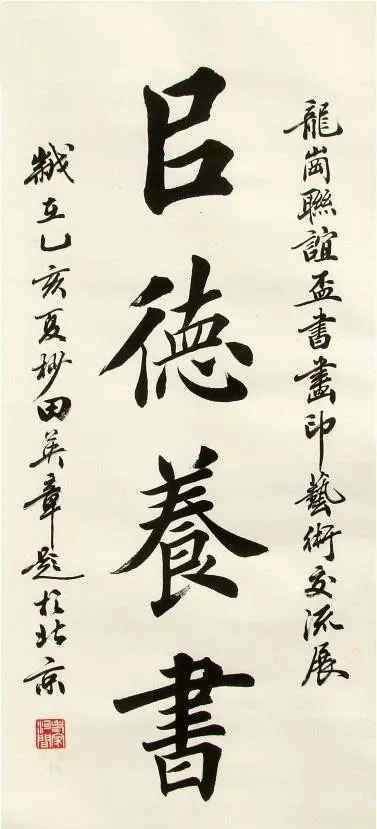 龍崗聯誼盃書畫印藝術交流展
㠯徳養書
歲在乙亥夏杪田英章題於北京